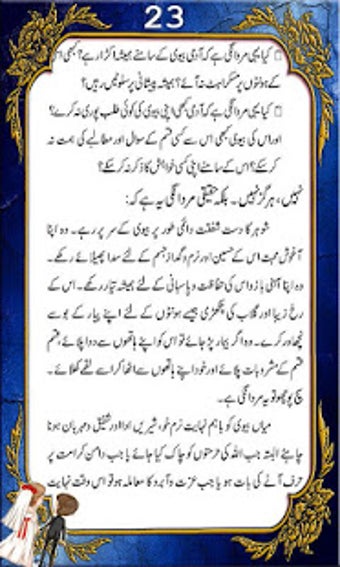 23
کیا یہی مردانگی ہے کہ آدمی بیوی کے سامنے ہمیشہ اکڑا رہے؟ کبھی اس
کے ہونٹوں پر مسکراہٹ نہ آئے؟ ہمیشہ پیشانی پر سلوٹیں رہیں؟
کیا یہی مردانگی ہے کہ آدمی کبھی اپنی بیوی کی کوئی طلب پوری نہ کرے؟
اور اس کی بیوی کبھی اس سے کسی قسم کے سوال اور مطالبے کی ہمت نہ
کرسکے؟ اس کے سامنے اپنی کسی خواہش کا ذکر نہ کرسکے؟
نہیں، ہرگز نہیں۔ بلکہ حقیقی مردانگی یہ ہے کہ:
شوہر کا دست شفقت دائمی طور پر بیوی کے سر پر رہے۔ وہ اپنا
آغوش محبت اس کے حسین اور نرم وگداز جسم کے لئے سدا پھیلائے رکھے۔
وہ اپنا آہنی بازو اس کی حفاظت و پاسبانی کے لئے ہمیشہ تیار رکھے۔ اس کے
رخ زیبا اور گلاب کی پنکھڑی جیسے ہونٹوں کے لئے اپنے پیار کے بوسے
نچھاور کرے۔ وہ اگر بیمار پڑ جائے تو اس کو اپنے ہاتھوں سے دوا پلائے، قسم
قسم کے مشروبات پلائے اور خود اپنے ہاتھوں سے اٹھا کر اسے لقمے کھلائے۔
سچ پوچھو تو یہ مردانگی ہے۔
میاں بیوی کو باہم نہایت نرم خو، شیریں ادا اور شفیق و مہربان ہونا
چاہئے البتہ جب اللہ کی حرمتوں کو چاک کیا جائے یا جب دامن کرامت پر
حرف آنے کی بات ہو یا جب عزت و آبرو کا معاملہ ہو تو اس وقت نہایت